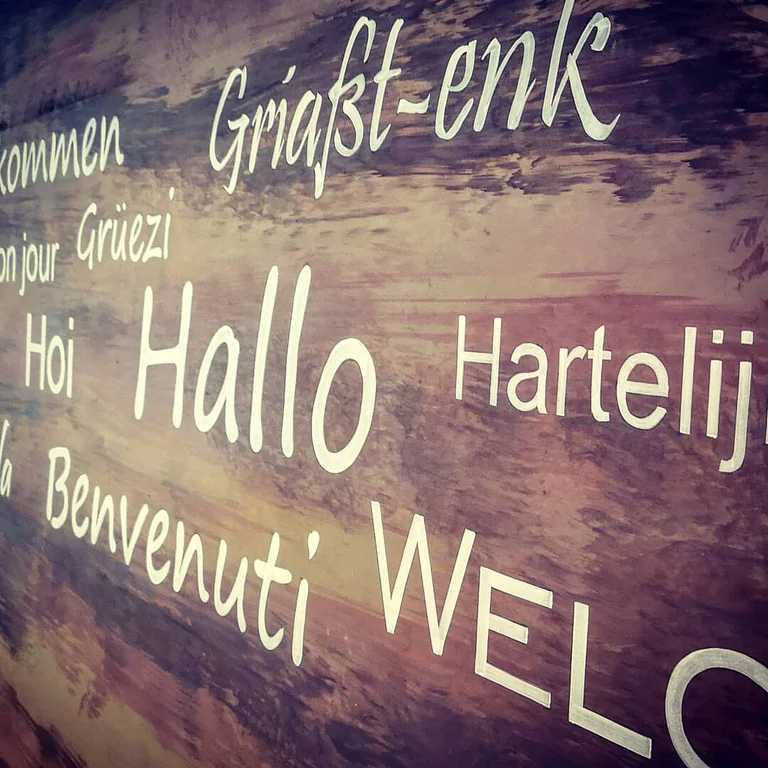 kommen
Griaßt-enk
on jour
Grüezi
Hoi
Hallo
Hartelij
la
Benvenuti
WELC